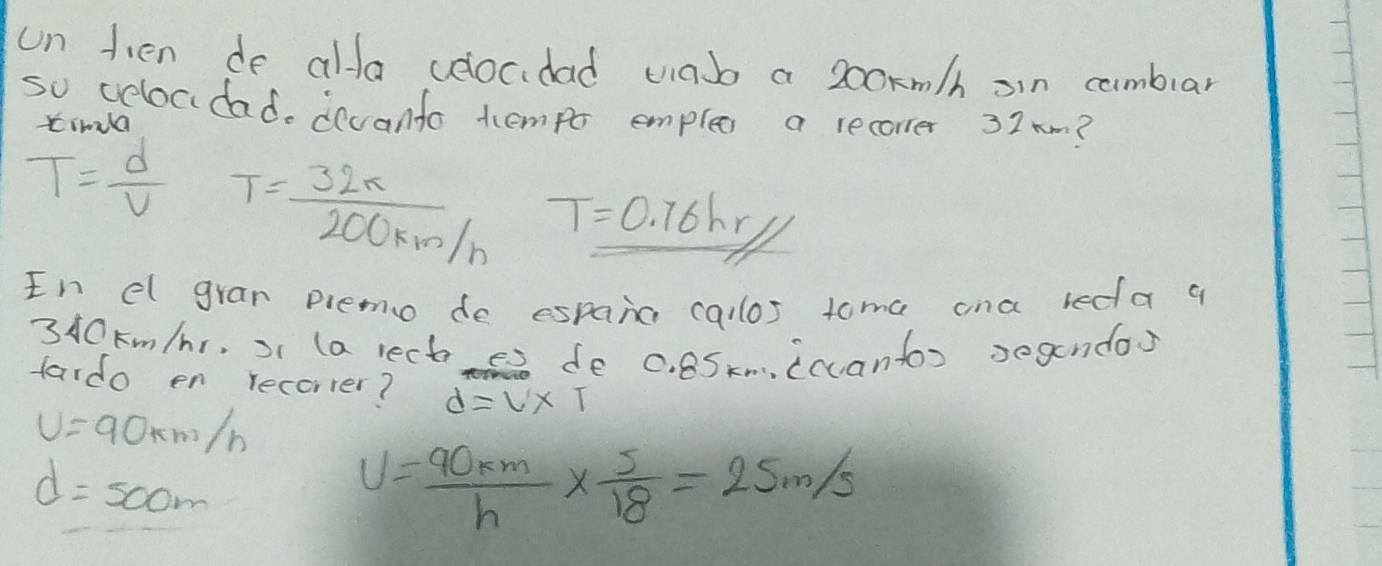 Un tren de alta velocidad viaja a 200km/h sin cambiar
su velocidad. ¿Cuanto tiempo emplea a recorrer 32km?
T=d/v T=32k/200km/h T=0.16hr//
En el gran premio de españa carlos toma una recta a
340km/hr. si la recta es de 0.85km. ¿cuantos segundos
tardo en recorrer? d=VxT
V=90km/h
d=500m V=90km/h x 5/18 = 25m/s